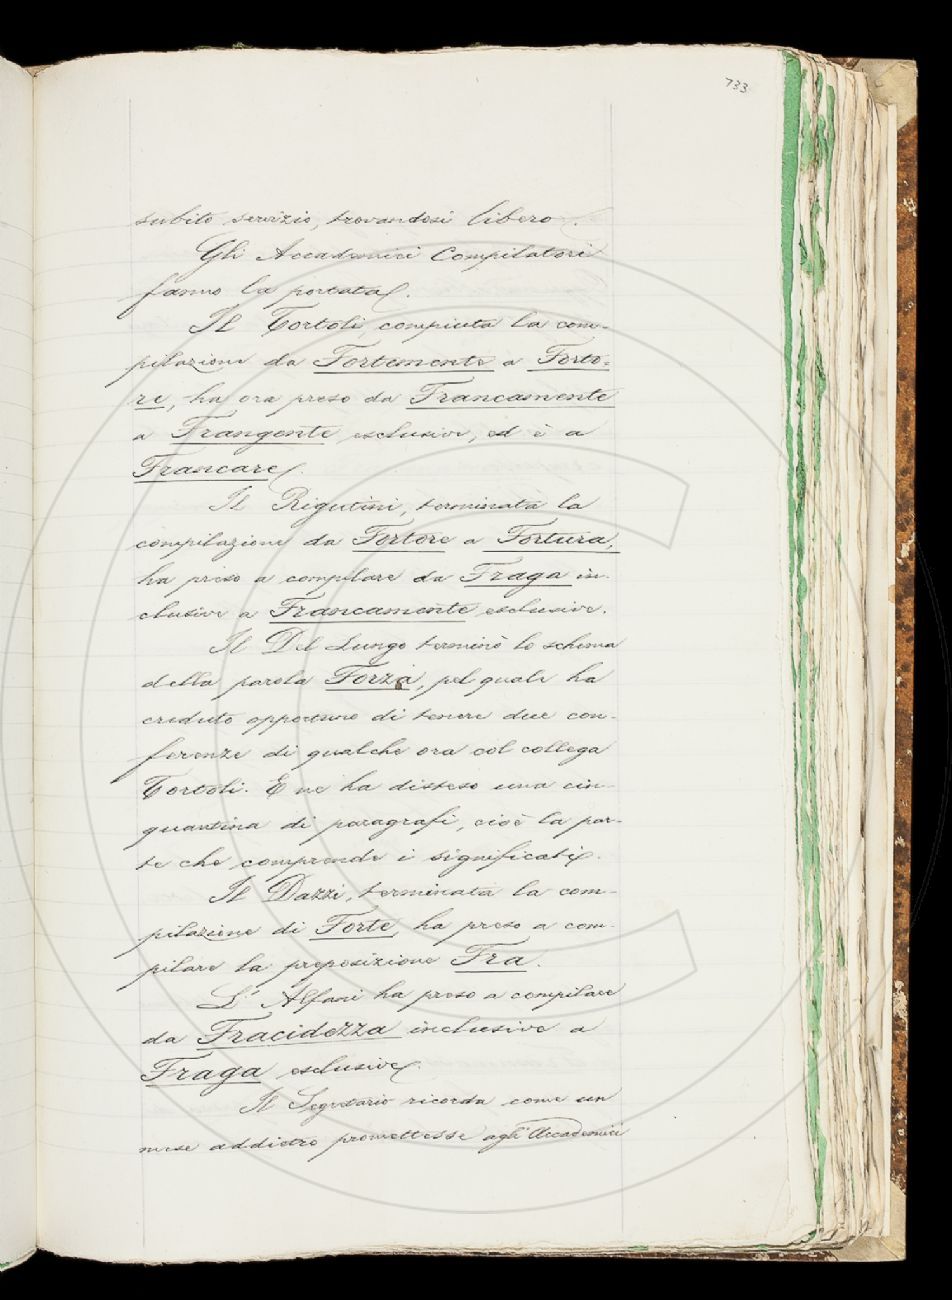 733
subito servizio, trovandosi libero.
Gli Accademici Compilatori
fanno la portata.
Il Tortoli compiuta la com-
pilazione da Fortemente a Forto-
re, ha ora preso da Francamente
a Frangente esclusive, ed è a
Francare.
Il Rigutini, terminata la
compilazione da Fortore a Fortura,
ha preso a compilare da Fraga in-
clusive a Francamente esclusive.
Il Del Lungo terminò lo schema
della parola Forza, pel quale ha
creduto opportuno di tenere due con-
ferenze di qualche ora col collega
Tortoli. E ne ha disteso una cin-
quantina di paragrafi, cioè la par-
te che comprende i significati.
Il Dazzi, terminata la com-
pilazione di Forte, ha preso a com-
pilare la preposizione Fra.
L'Alfani ha preso a compilare
da Fracidezza inclusive a
Fraga esclusive.
Il Segretario ricorda come un
mese addietro promettesse agli Accademici